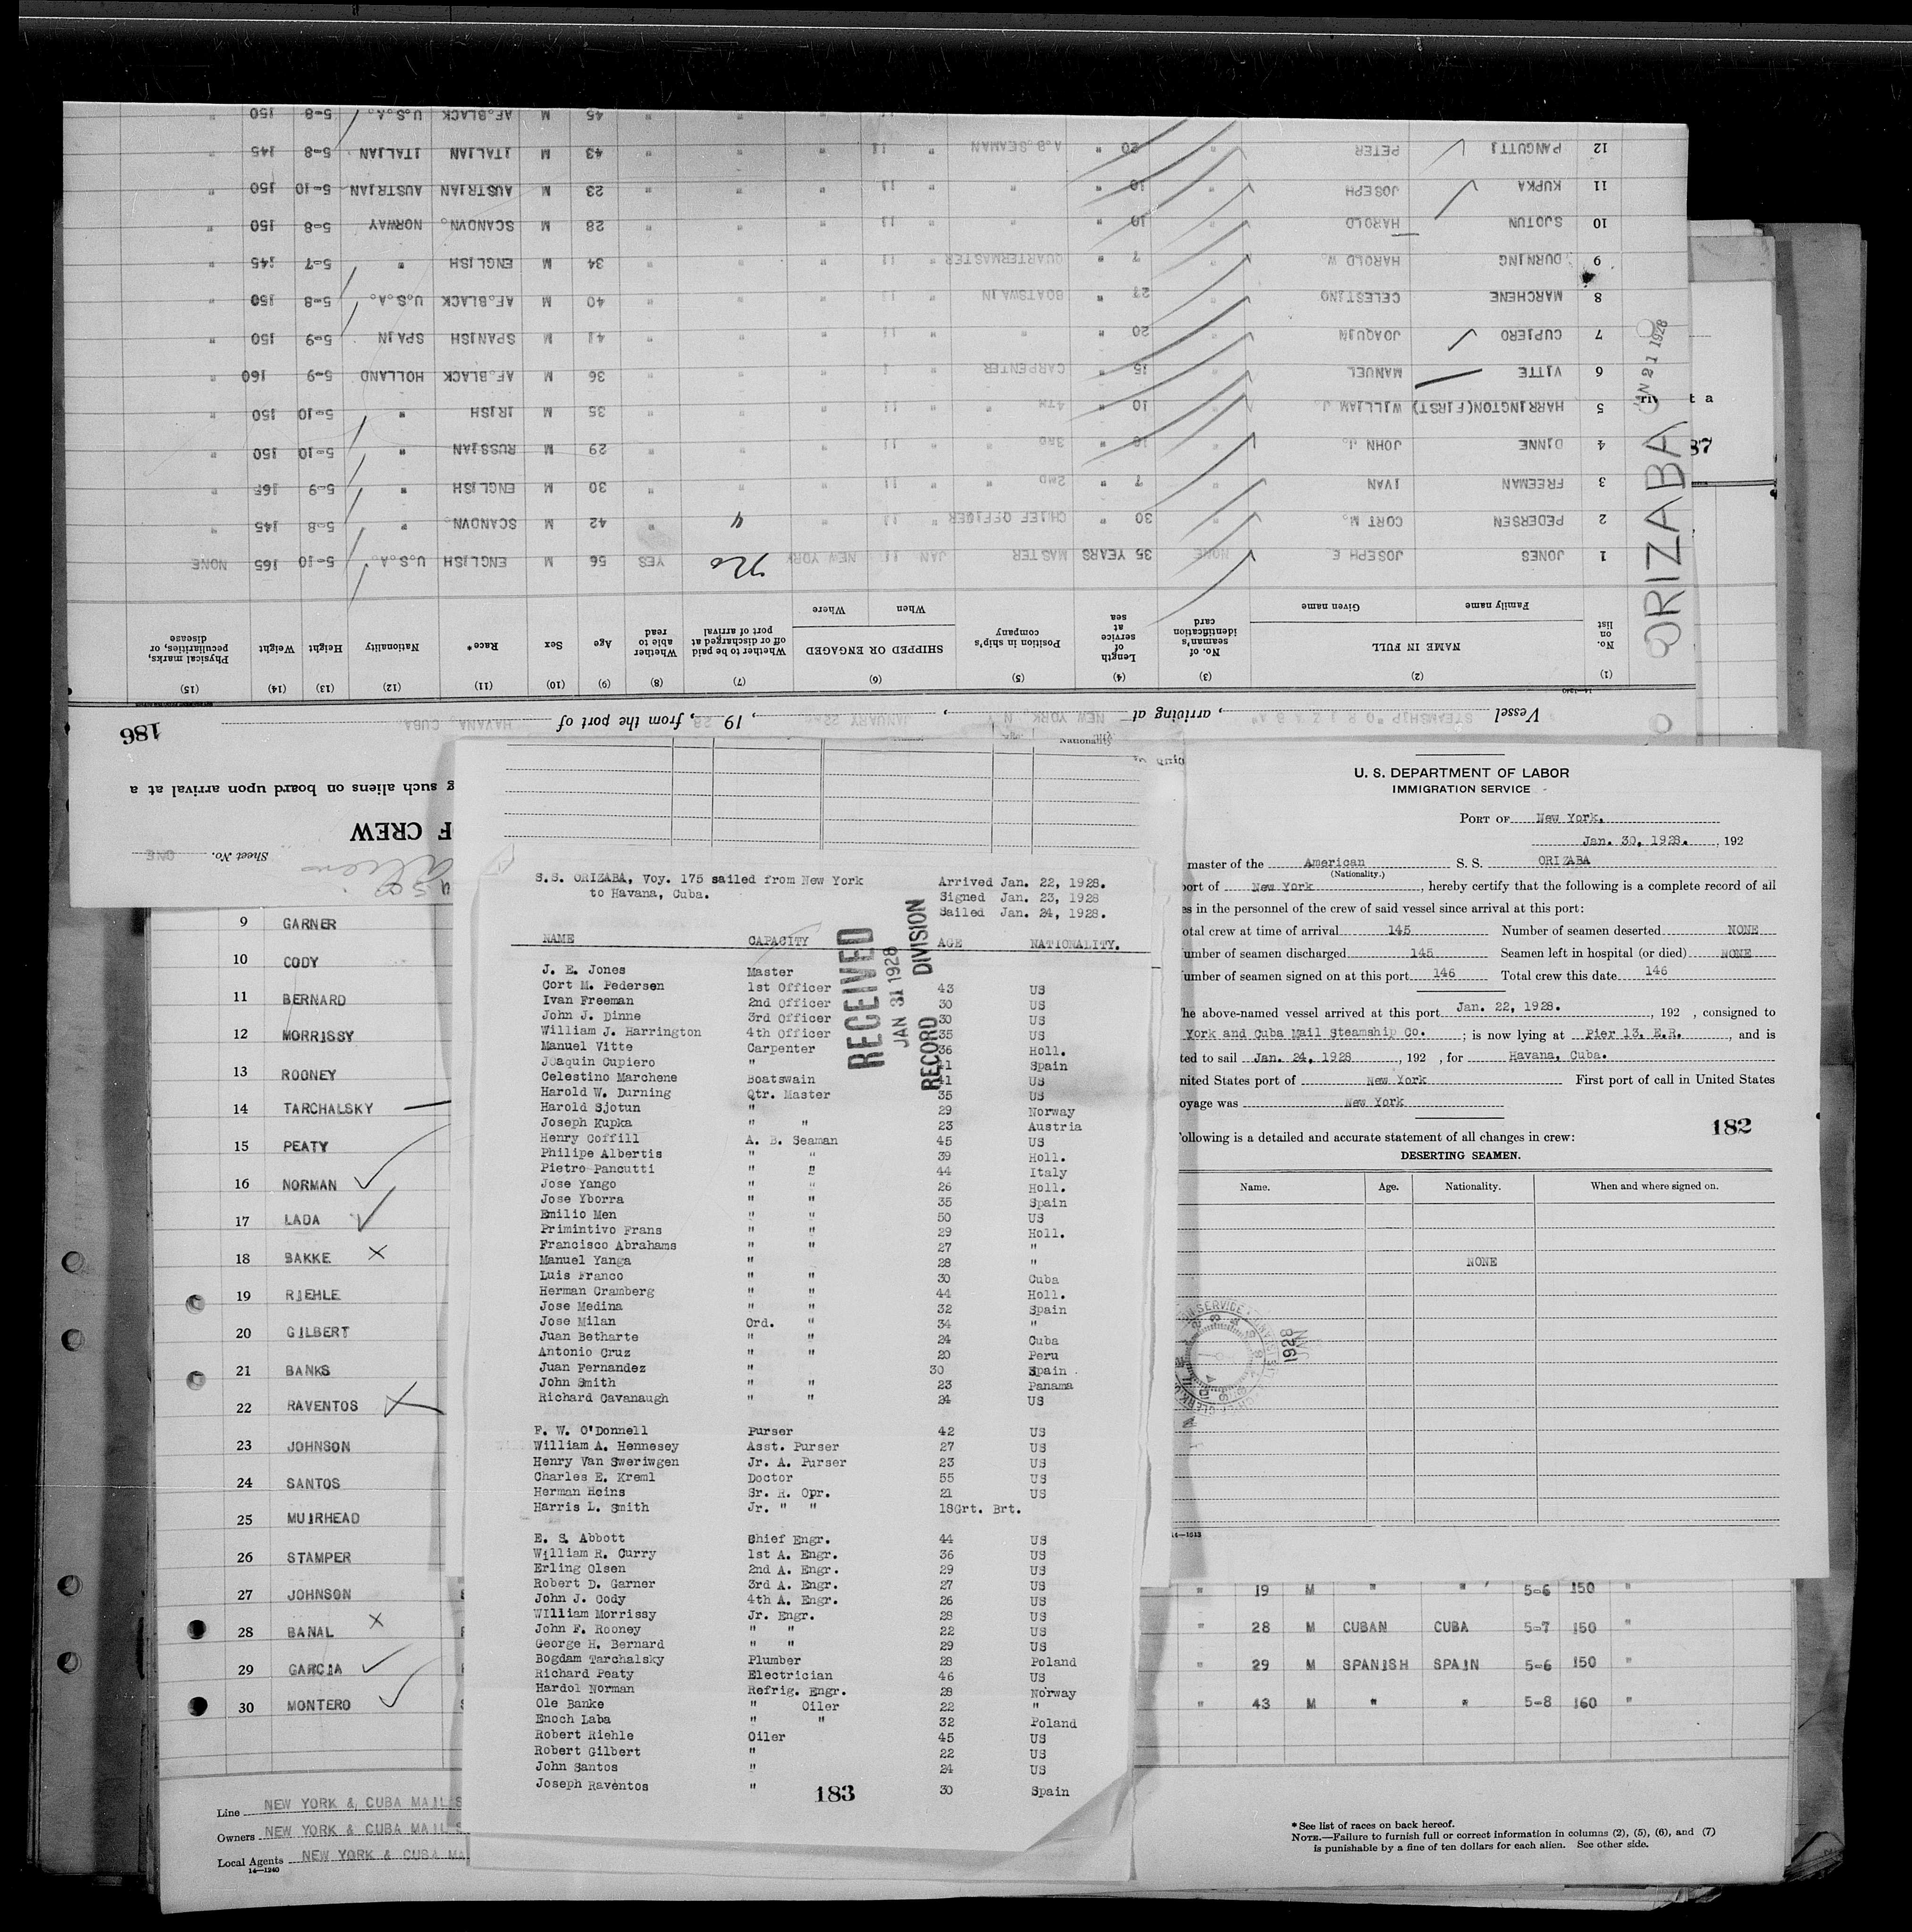 45 " " 11 " " " 45 M AF.BLACK U.S.A. 5-8 150 "
12 PANCUTTI PETER " 20 " A.B.SEAMAN " 11 " " " 43 M ITALIAN ITALIAN 5-8 145 "
11 KUPKA JOSEPH " 10 " " " 11 " " " 23 M AUSTRIAN AUSTRIAN 5-10 150 "
10 SJOTUN HAROLD " 10 " " " 11 " " " 28 M SCANDVN. NORWAY 5-8 150 "
9 DURNING HAROLD W. " 7 " QUARTERMASTER " 11 " " " 34 M ENGLISH " 5-7 145 "
8 MARCHENE CELESTINO " 27 " BOATSWAIN " 11 " " " 40 M AF.BLACK U.S.A. 5-8 150 "
7 CUPIERO JOAQUIN " 20 " " " 11 " " " 41 M SPANISH SPAIN 5-9 150 "
6 VITTE MANUEL " 15 " CARPENTER " " " " 36 M AF.BLACK HOLLAND 5-9 160 "
5 HARRINGTON(FIRST) WILLIAM J. " 10 " 4TH " " 11 " " " 35 M IRISH " 5-10 150 "
4 DINNE JOHN J. " 10 " 3RD " " 11 " " " 29 M RUSSIAN " 5-10 150 "
3 FREEMAN IVAN " 7 " 2ND " " 11 " " " 30 M ENGLISH " 5-9 165 "
2 PEDERSEN CORT M. " 30 " CHIEF OFFICER " 11 " " 42 M SCANDVN. " 5-8 145 "
1 JONES JOSEPH E NONE 35 YEARS MASTER JAN 11 NEW YORK No YES 56 M ENGLISH U.S.A. 5-10 165 NONE
ORIZABA
JAN 21 1928
No. on list
NAME IN FULL
Family name Given name
No. of seaman's identification card
Length of service at sea
Position in ship's company
SHIPPED OR ENGAGED
When Where
Whether to be paid off or discharged at port of arrival
Whether able to read
Age Sex Race* Nationality Height Weight
Physical marks, peculiarities, or disease
(1) (2) (3) (4) (5) (6) (7) (8) (9) (10) (11) (12) (13) (14) (15)
14-1240
Vessel STEAMSHIP "ORIZABA", arriving at NEW YORK, N.Y., JANUARY 22, 1928, from the port of HAVANA, CUBA.
186
g such aliens on board upon arrival at a
F CREW
Sheet No. ONE
Aliens
t a
87
9 GARNER
10 CODY
11 BERNARD
12 MORRISSY
13 ROONEY
14 TARCHALSKY
15 PEATY
16 NORMAN
17 LADA
18 BAKKE
19 RIEHLE
20 GILBERT
21 BANKS
22 RAVENTOS
23 JOHNSON
24 SANTOS
25 MUIRHEAD
26 STAMPER
27 JOHNSON
28 BANAL
29 GARCIA
30 MONTERO
Line NEW YORK & CUBA MAIL S
Owners NEW YORK & CUBA MAIL S
Local Agents NEW YORK & CUBA MA
14-1240
Nationality
S.S. ORIZABA, Voy. 175 sailed from New York
to Havana, Cuba.
Arrived Jan. 22, 1928.
Signed Jan. 23, 1928
Sailed Jan. 24, 1928.
NAME CAPACITY AGE NATIONALITY.
RECEIVED
JAN 31 1928
RECORD DIVISION
J. E. Jones Master
Cort M. Pedersen 1st Officer 43 US
Ivan Freeman 2nd Officer 30 US
John J. Dinne 3rd Officer 30 US
William J. Harrington 4th Officer 35 US
Manuel Vitte Carpenter 36 Holl.
Joaquin Cupiero " 41 Spain
Celestino Marchene Boatswain 41 US
Harold W. Durning Qtr. Master 35 US
Harold Sjotun " 29 Norway
Joseph Kupka " " 23 Austria
Henry Coffill A. B. Seaman 45 US
Philipe Albertis " " 39 Holl.
Pietro Pancutti " " 44 Italy
Jose Yango " " 26 Holl.
Jose Yborra " " 35 Spain
Emilio Men " " 50 US
Primintivo Frans " " 29 Holl.
Francisco Abrahams " " 27 "
Manuel Yanga " 28 "
Luis Franco " " 30 Cuba
Herman Cramberg " " 44 Holl.
Jose Medina " " 32 Spain
Jose Milan Ord. " 34 "
Juan Betharte " " 24 Cuba
Antonio Cruz " " 20 Peru
Juan Fernandez " 30 Spain
John Smith " " 23 Panama
Richard Cavanaugh " " 24 US
F. W. O'Donnell Purser 42 US
William A. Hennesey Asst. Purser 27 US
Henry Van Sweriwgen Jr. A. Purser 23 US
Charles E. Kreml Doctor 55 US
Herman Heins Sr. R. Opr. 21 US
Harris L. Smith Jr. " " 18Grt. Brt.
E. S. Abbott Chief Engr. 44 US
William R. Curry 1st A. Engr. 36 US
Erling Olsen 2nd A. Engr. 29 US
Robert D. Garner 3rd A. Engr. 27 US
John J. Cody 4th A. Engr. 26 US
WIlliam Morrissy Jr. Engr. 28 US
John F. Rooney " " 22 US
George H. Bernard " " 29 US
Bogdam Tarchalsky Plumber 28 Poland
Richard Peaty Electrician 46 US
Hardol Norman Refrig. Engr. 28 Norway
Ole Banke " Oiler 22 "
Enoch Laba " " 32 Poland
Robert Riehle Oiler 45 US
Robert Gilbert " 22 US
John Santos " 24 US
Joseph Raventos " 30 Spain
183
U. S. DEPARTMENT OF LABOR
IMMIGRATION SERVICE
PORT OF New York.
Jan. 30, 1928. , 192
master of the American S. S. ORIZABA
(Nationality.)
ort of New York, hereby certify that the following is a complete record of all
es in the personnel of the crew of said vessel since arrival at this port:
otal crew at time of arrival 145 Number of seamen deserted NONE
umber of seamen discharged 145 Seamen left in hospital (or died) NONE
umber of seamen signed on at this port 146 Total crew this date 146
he above-named vessel arrived at this port Jan. 22, 1928. , 192 , consigned to
York and Cuba Mail Steamship Co. ; is now lying at Pier 13, E.R. , and is
ted to sail Jan. 24, 1928 , 192 , for Havana, Cuba.
nited States port of New York First port of call in United States
oyage was New York
182
ollowing is a detailed and accurate statement of all changes in crew:
DESERTING SEAMEN.
Name. Age. Nationality. When and where signed on.
NONE
1928
JAN
14-1613
" 19 M " " 5-6 150 "
" 28 M CUBAN CUBA 5-7 150 "
" 29 M SPANISH SPAIN 5-6 150 "
" 43 M " " 5-8 160 "
*See list of races on back hereof.
NOTE.—Failure to furnish full or correct information in columns (2), (5), (6), and (7)
is punishable by a fine of ten dollars for each alien. See other side.